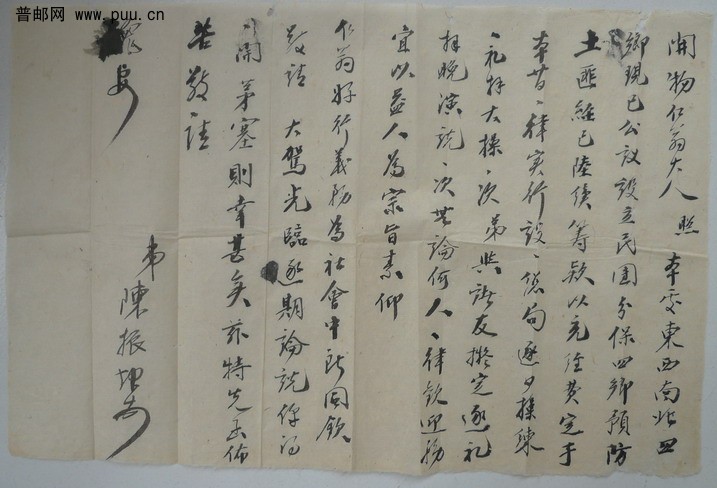 普邮网
www.puu.cn
開物仁翁大人 照 本處東西南北四
鄉現已公議設立民團分保四鄉預防
土匪經已陸續籌款以充經費定于
本昔一律實行設一 句逐夕操練
一礼拜大操一次弟與諸友擬定逐礼
拜晚演說一次無論何人一律欽迎務
宜以益人為宗旨素仰
仁翁好行義務為社會中所同欽
敬請 大駕光臨逐期論說俾得
開茅塞則幸甚矣茲特先函佈
告敬請
安
弟陳振